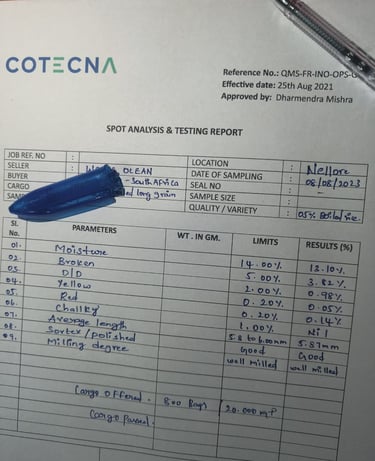 COTECNA
Reference No.: QMS-FR-INO-OPS-
Effective date: 25th Aug 2021
Approved by: Dharmendra Mishra
SPOT ANALYSIS & TESTING REPORT
JOB REF. NO : LOCATION : Nellore
SELLER : OLEAN DATE OF SAMPLING : 08/08/2023
BUYER - South Africa SEAL NO : -
CARGO long grain SAMPLE SIZE :
QUALITY / VARIETY : 05% Boiled rice
Sl. No. PARAMETERS WT. IN GM. LIMITS RESULTS (%)
01. Moisture 14.00% 13.10%
02. Broken 5.00% 3.82%
03. D/D 2.00% 0.98%
04. Yellow 0.20% 0.05%
05. Red 0.20% 0.14%
06. Chalky 1.00% Nil
07. Average length 5.8 to 6.00mm 5.87mm
08. Sortex/polished Good Good
09. Milling degree well milled well milled
Cargo offered. 800 Bags 20.000 MT
Cargo Passed.